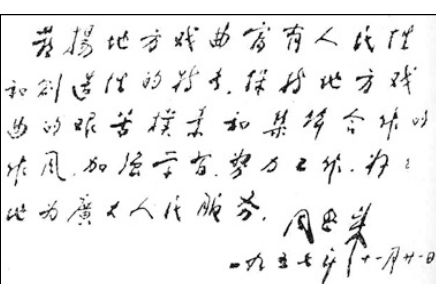 发揚地方戏曲富有人民性
和创造性的特长，保持地方戏
曲的艰苦樸素和集体合作的
作风，加强学習，努力工作，好好
地为廣大人民服务。
周恩来
一九五七年十一月廿一日